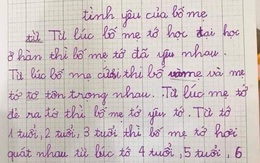 tình yêu của bố mẹ
Từ lúc bố mẹ tớ học đai học
ở hàn thì bố mẹ tớ đã yêu nhau.
Từ lúc bố mẹ cưới thì bố và mẹ
tớ tôn trọng nhau. Từ lúc mẹ tớ
đẻ ra tớ thì bố mẹ tớ yêu tớ. Từ tớ
1 tuổi, 2 tuổi, 3 tuổi thì bố mẹ tớ hơi
quát nhau từ lúc tớ 4 tuổi, 5 tuổi, 6